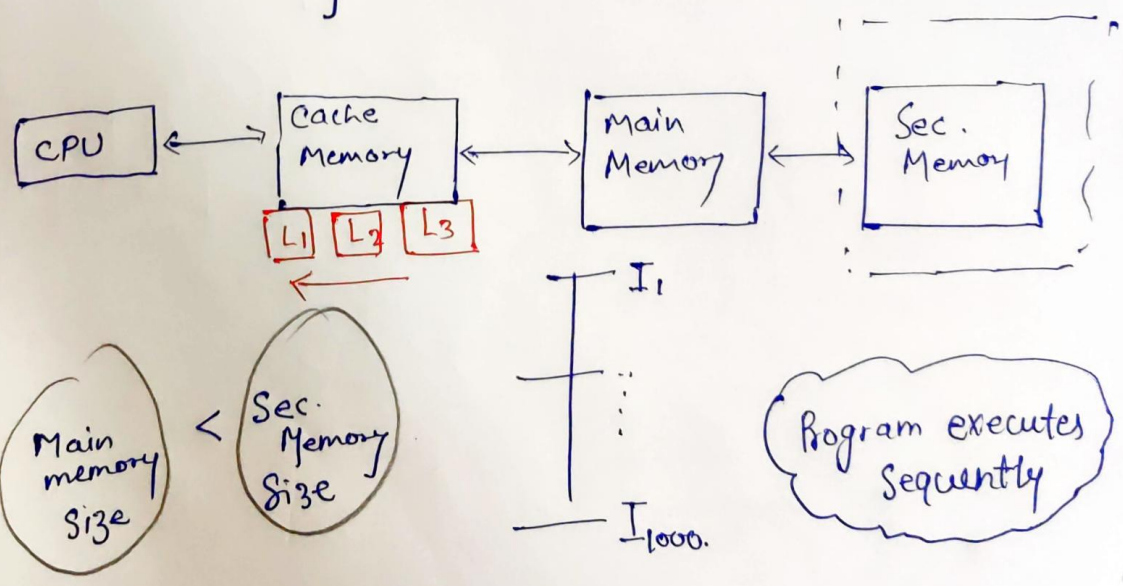 CPU
Cache
Memory
Main
Memory
Sec.
Memoy
L1 L2 L3
I1
Main
memory
Size
<
Sec.
Memory
Size
I1000.
Program executes
Sequently